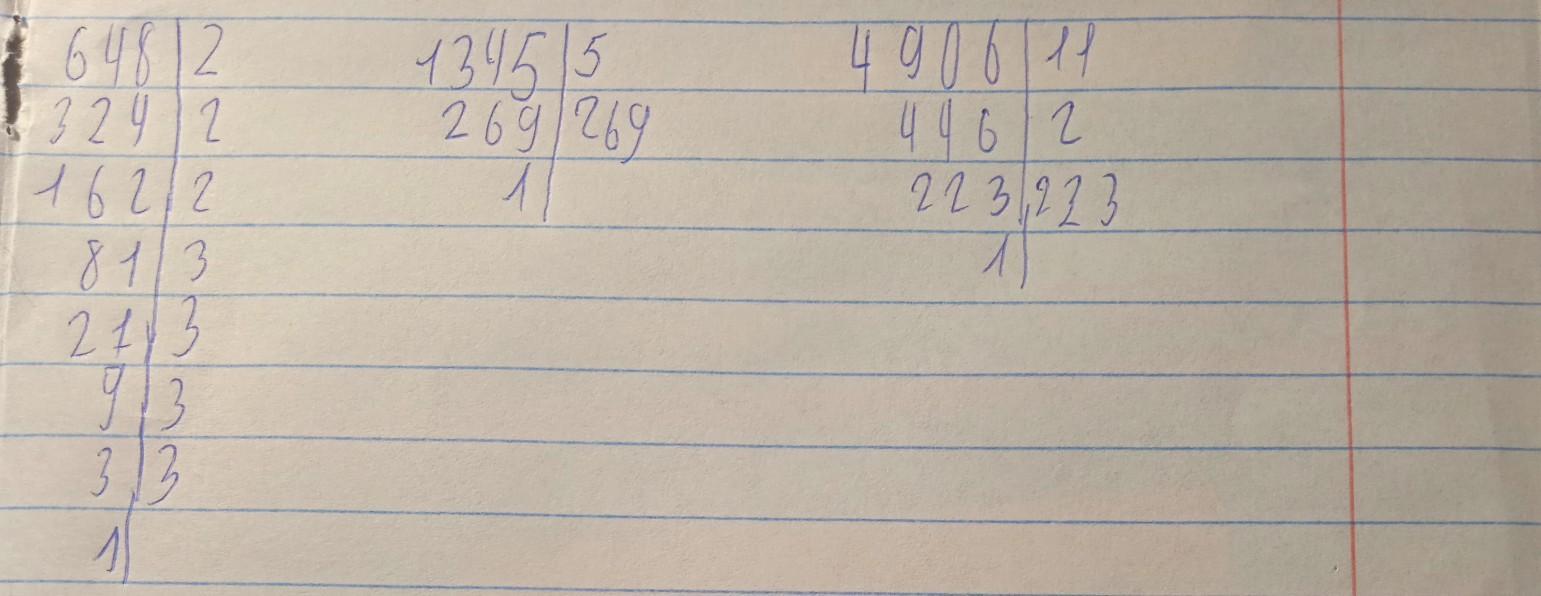 648 | 2
324 | 2
162 | 2
81 | 3
27 | 3
9 | 3
3 | 3
1 |
1345 | 5
269 | 269
1 |
4906 | 11
446 | 2
223 | 223
1 |